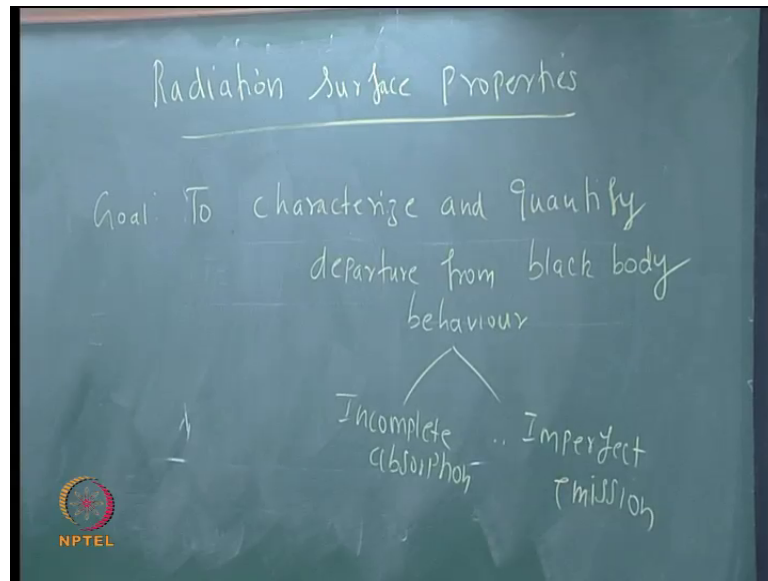 Radiation surface properties
Goal: To characterize and quantify
departure from black body
behaviour
Incomplete .. Imperfect
absorption emission
NPTEL